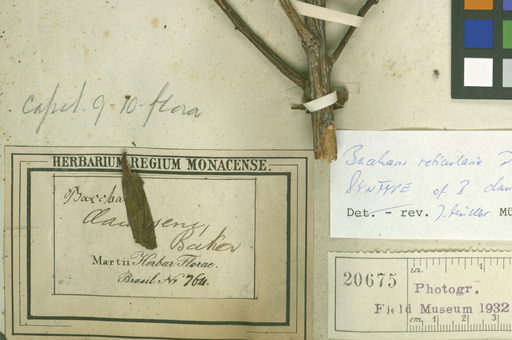 Capit. 9-10-flora
HERBARIUM REGIUM MONACENSE.
Baccha
Claussenii
Baker
Martii Herbar. Florae
Brasil. No 764.
Baccharis reticularia D
SYNTYPE of B. clau
Det. - rev. J. Müller Mü
20675
in. 1
Photogr.
Field Museum 1932
cm 1 2 3